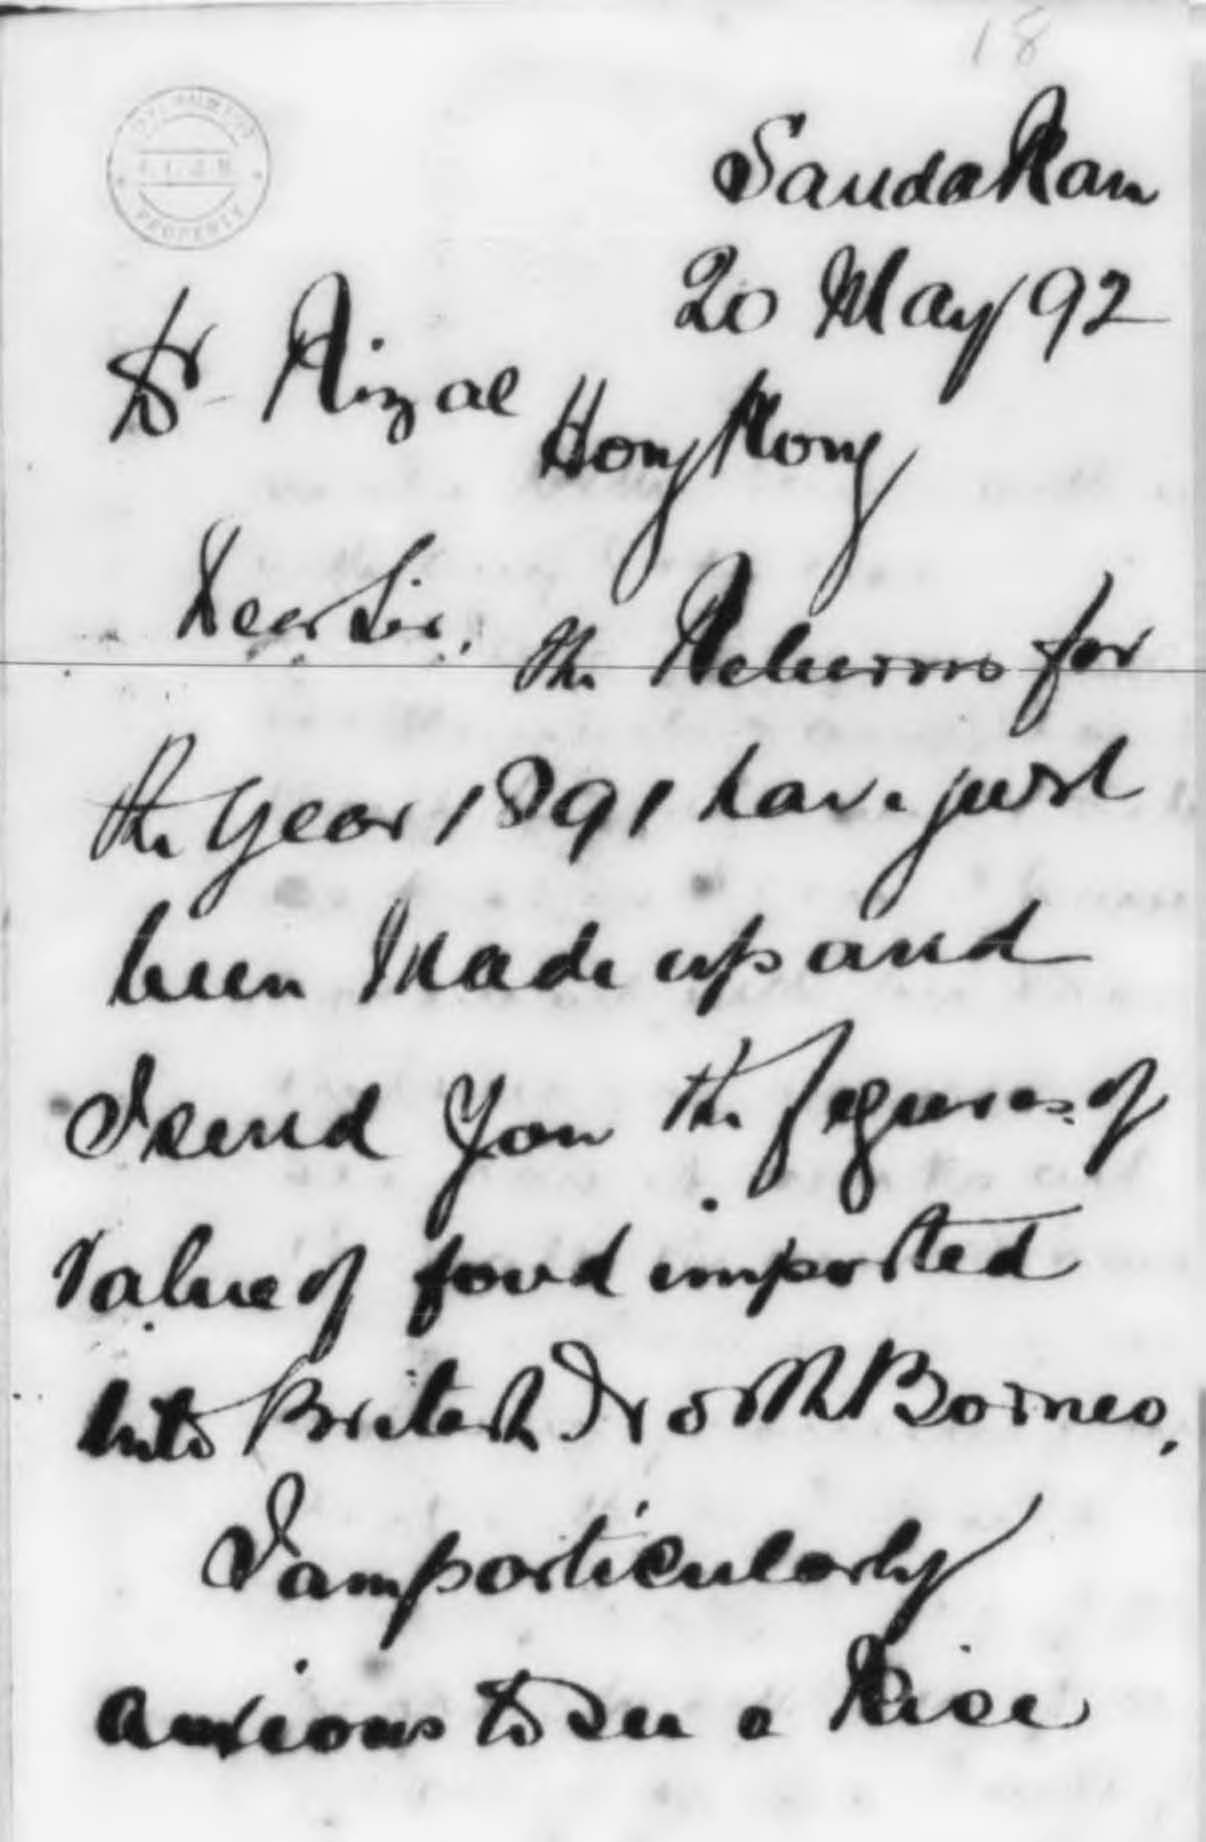 18
GOVERNMENT
PROPERTY
Sandakan
20 May 92
Dr Rizal
Hong Kong
Dear Sir,
the Returns for
the year 1891 have just
been made up and
I send you the figures of
value of food imported
into British North Borneo,
I am particularly
anxious to see a Rice